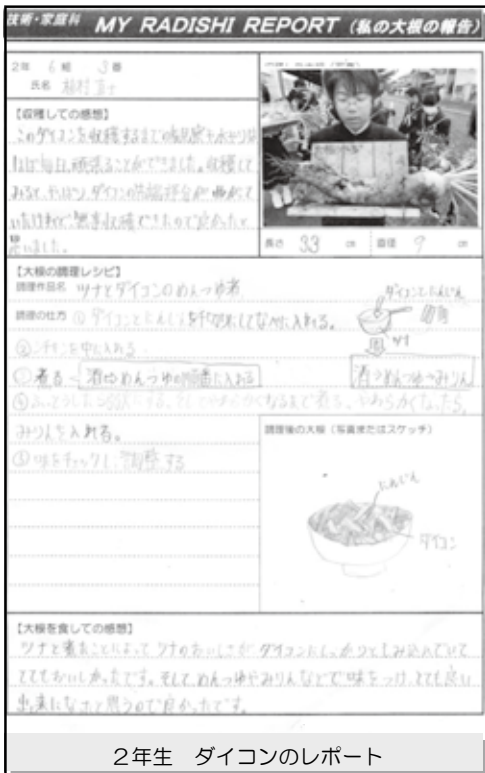 技術・家庭科 MY RADISHI REPORT (私の大根の報告)
2年 6組 3番
氏名
【収穫しての感想】
このダイコンを収穫するまでの観察や水やりは
ほぼ毎日、頑張ることができました。収穫して
みると、やっぱり、ダイコンの先端部分が曲がって
いたけれど、無事収穫できたので良かったと
思いました。
長さ 33 cm 直径 9 cm
【大根の調理レシピ】
調理作品名 ツナとダイコンのめんつゆ煮
調理の仕方 ① ダイコンとにんじんを千切りにしてなべに入れる。
ダイコンとにんじん
ツナ
② を中に入れる
③ 煮る 酒→めんつゆの順番に入れる
酒→めんつゆ→みりん
④ ふっとうしたら弱火にする、そしてやわらかくなるまで煮る、やわらかくなったら、
みりんを入れる。
⑤ 味をチェックし、調整する
調理後の大根(写真またはスケッチ)
にんじん
ダイコン
【大根を食しての感想】
ツナと煮ることによって ツナのおいしさが ダイコンにしっかりとしみ込んでいて
とてもおいしかったです。そして、めんつゆやみりんなどで味をつけ、とても良い
出来になったと思うので良かったです。
2年生 ダイコンのレポート